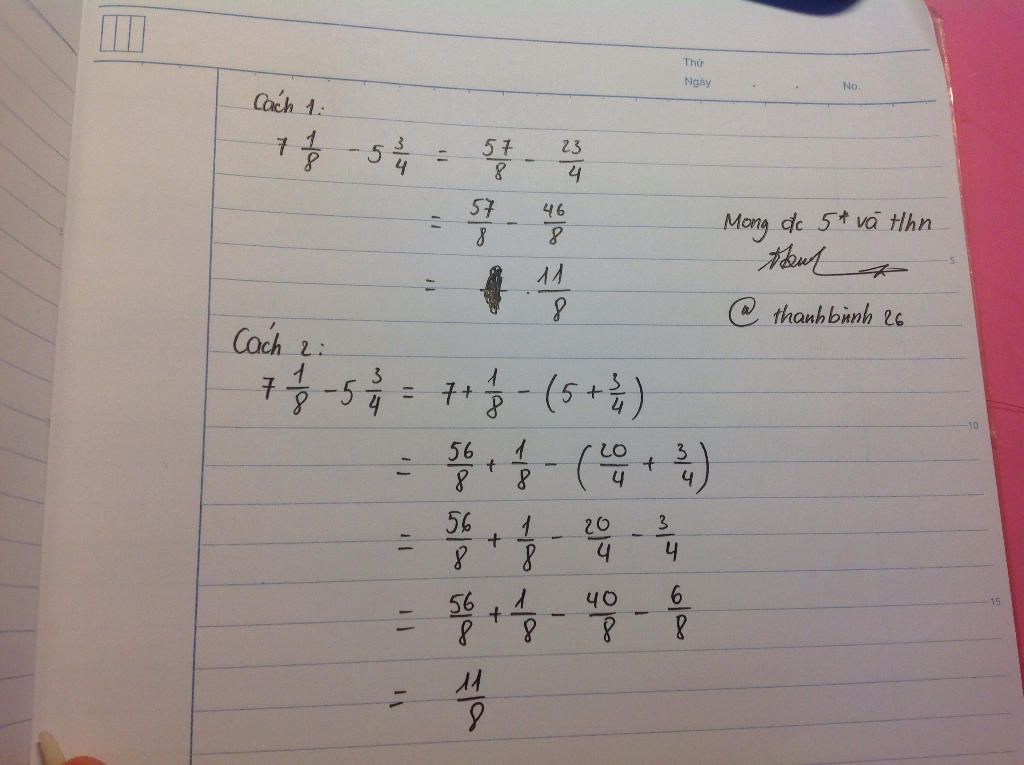 Thứ
Ngày . . No.
Cách 1:
7 1/8 - 5 3/4 = 57/8 - 23/4
= 57/8 - 46/8
= 11/8
Mong đc 5* và tlhn
@ thanhbinh 26
5
Cách 2:
7 1/8 - 5 3/4 = 7 + 1/8 - (5 + 3/4)
10
= 56/8 + 1/8 - (20/4 + 3/4)
= 56/8 + 1/8 - 20/4 - 3/4
= 56/8 + 1/8 - 40/8 - 6/8
15
= 11/8